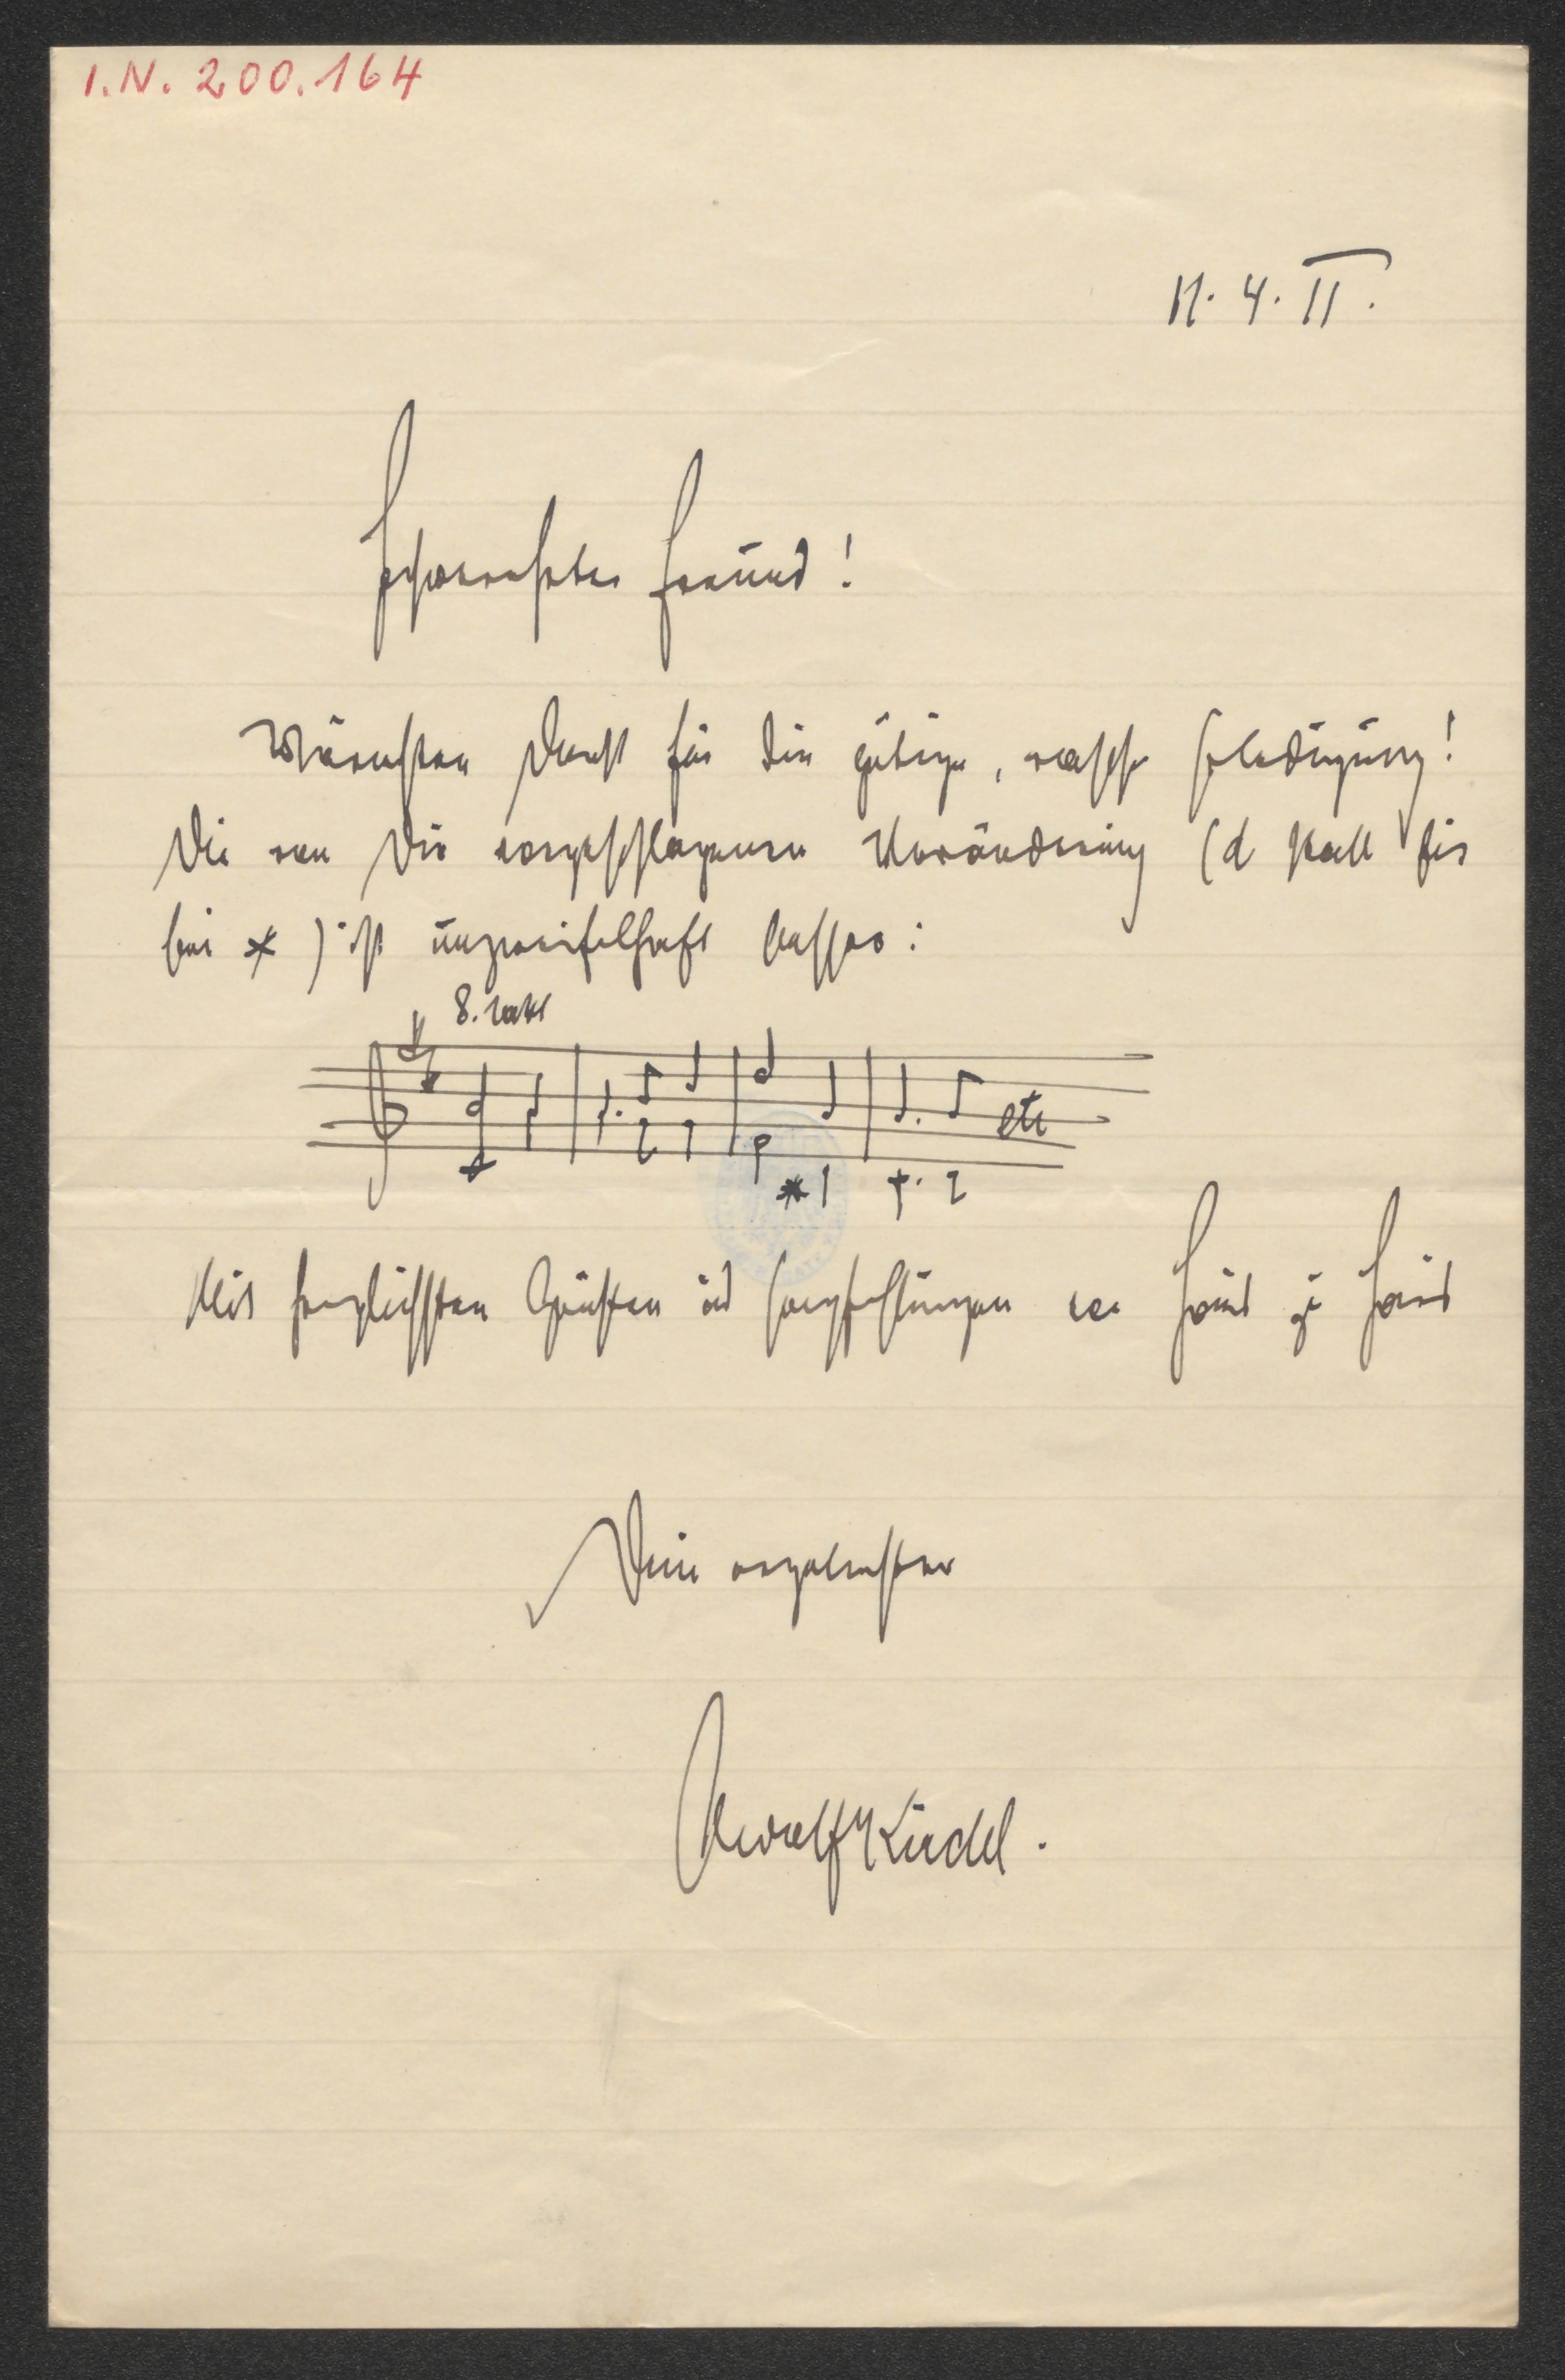 I.N. 200.164
11. 4. II.
Hochverehrter Freund!
Wärmsten Dank für die gütige, rasche Erledigung!
Die von Dir vorgeschlagenen Veränderung (d statt fis
bei *) ist unzweifelhaft besser:
8. Takt
etc
*
Mit herzlichsten Grüßen und Empfehlungen von Haus zu Haus
Dein ergebenster
Adolf Kirchl.